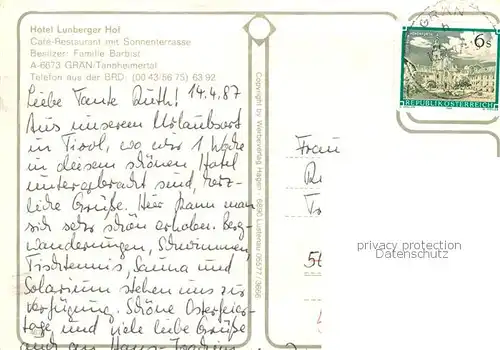 Hotel Lunberger Hof
Café-Restaurant mit Sonnenterrasse
Besitzer: Familie Barbist
A-6673 GRÄN/Tannheimertal
Telefon aus der BRD: (00 43-56 75) 63 92
Liebe Tante Ruth! 14.4.87
Aus unserem Urlaubsort
in Tirol, wo wir 1 Woche
in diesem schönen Hotel
untergebracht sind, herz-
liche Grüße. Hier kann man
sich sehr schön erholen. Berg-
wanderungen, Schwimmen,
Tischtennis, Sauna und
Solarium stehen uns zur
Verfügung. Schöne Osterfeier-
tage und viele liebe Grüße
auch an Hans-Joachim
Copyright by Werbeverlag Hagen · 6890 Lustenau 05577/3866
GRÄN
6s
REPUBLIK ÖSTERREICH
Frau
privacy protection
Datenschutz